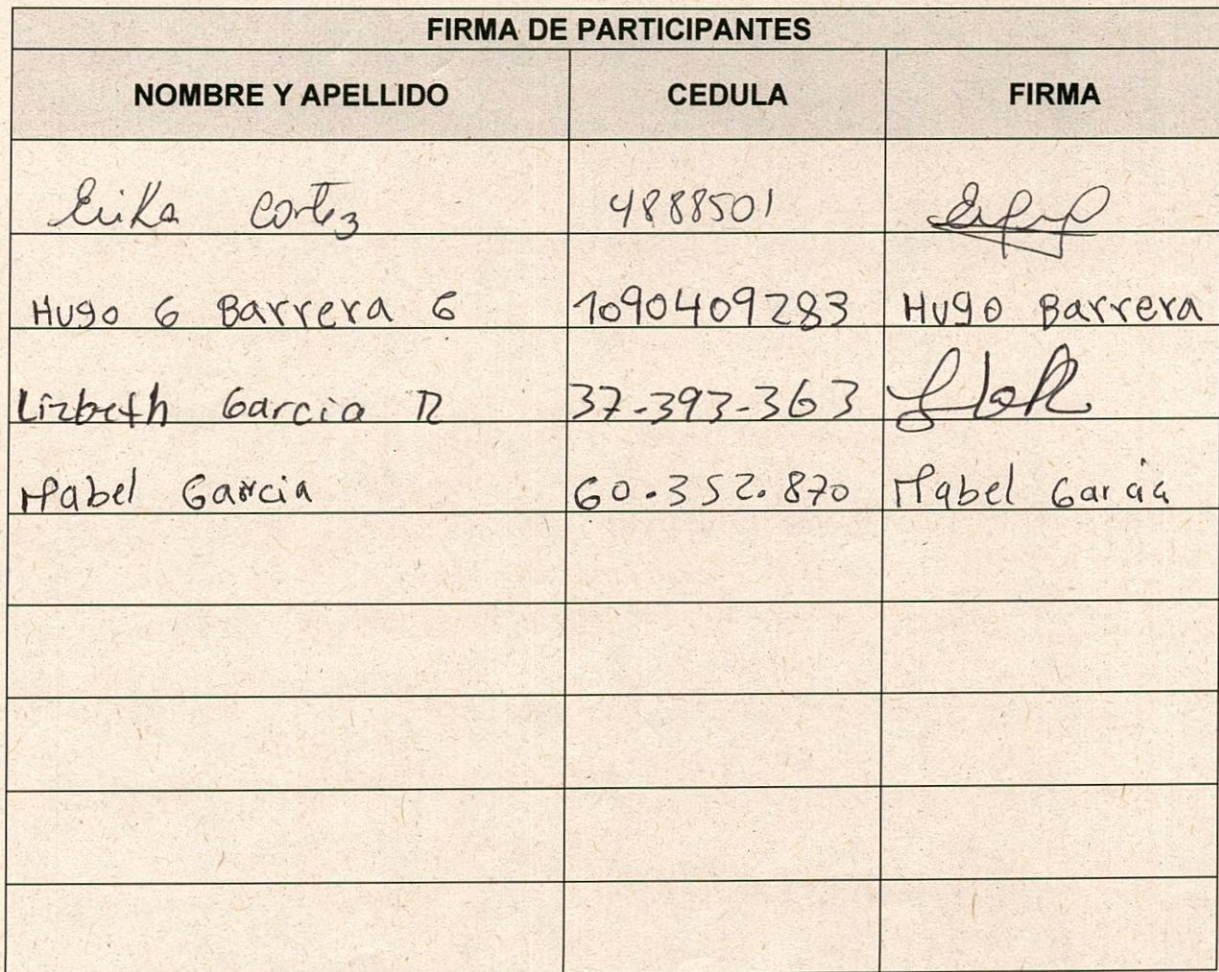 FIRMA DE PARTICIPANTES
NOMBRE Y APELLIDO CEDULA FIRMA
Erika Cortez 4888501
Hugo G Barrera G 1090409283 Hugo Barrera
Lizbeth Garcia R 37-393-363
Mabel Garcia 60.352.870 Mabel Garcia